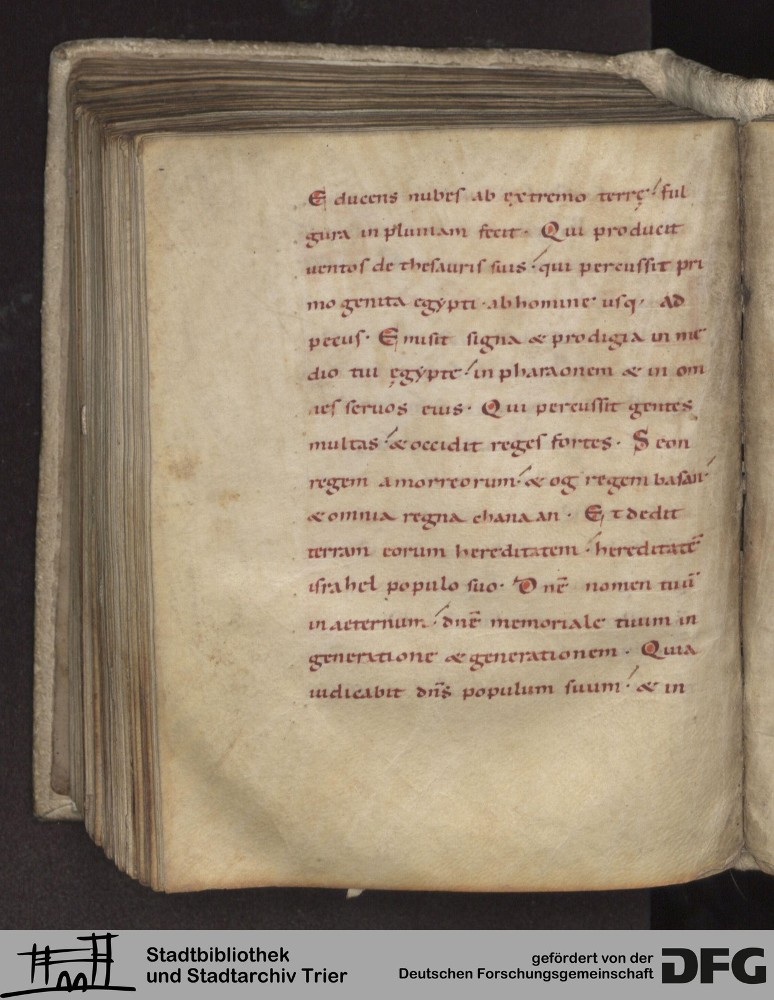 Educens nubes ab extremo terrę. ful
gura in pluuiam fecit. Qui producit
uentos de thesauris suis. qui percussit pri
mogenita egypti. ab homine usq. ad
pecus. Emisit signa & prodigia in me
dio tui ęgypte. in pharaonem & in om
nes seruos eius. Qui percussit gentes
multas. & occidit reges fortes. Seon
regem amorreorum. & og regem basan
& omnia regna chanaan. Et dedit
terram eorum hereditatem. hereditatē
israhel populo suo. Dnē nomen tuū
in aeternum. dnē memoriale tuum in
generatione & generationem. Quia
iudicabit dn̄s populum suum. & in
Stadtbibliothek
und Stadtarchiv Trier
gefördert von der
Deutschen Forschungsgemeinschaft
DFG